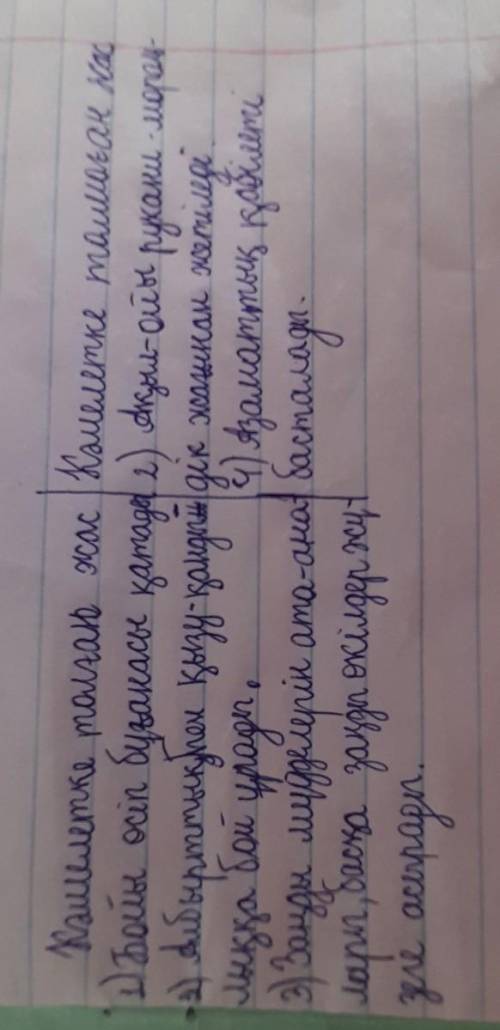 Кәмелетке толған жас
1) Бойы өсіп бұғанасы қатады
2) Албырттықпен қызу-қанды
лыққа бой ұрады.
3) Заңды мүдделерін ата-ана
лары, басқа заңды өкілдер жү-
зеге асырады.
Кәмелетке толмаған жас
2) Ақыл-ойы рухани-морал-
дік жағынан жетіледі.
4) Азаматтық қабілеті
басталады.